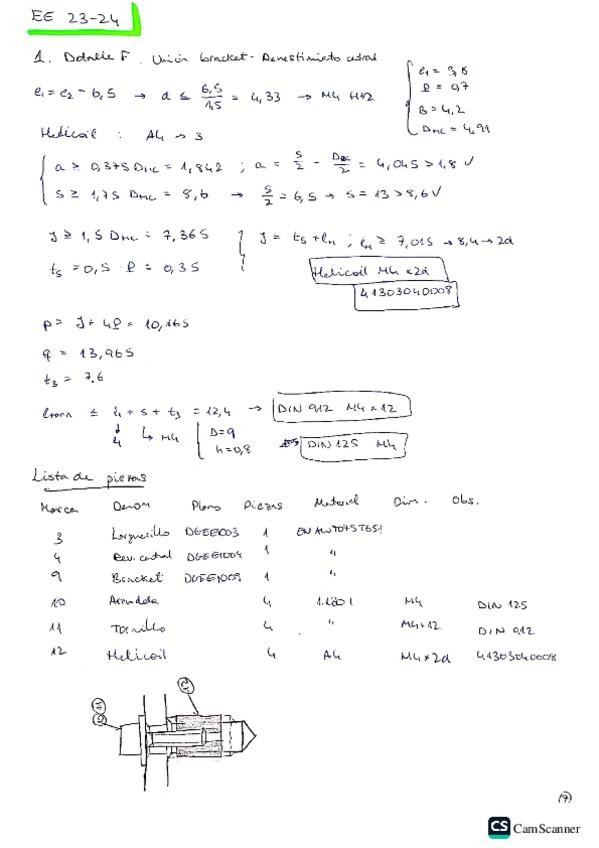 EE 23-24
1. Detalle F. Unión bracket - Revestimiento central
e₁ = e₂ = 6,5 → d ≤ 6,5/1,5 = 4,33 → M4 H12 { e₁ = 3,8
P = 0,7
B = 4,2
D_HC = 4,91
Helicoil : A4 → 3
{ a ≥ 0,375 D_HC = 1,842 ; a = S/2 - D_HC/2 = 4,045 > 1,8 ✓
S ≥ 1,75 D_HC = 8,6 → S/2 = 6,5 → S = 13 > 8,6 ✓
J ≥ 1,5 D_HC = 7,365 J = t₅ + l_H ; l_H ≥ 7,015 → 8,4 → 2d
t₅ = 0,5 · P = 0,35 Helicoil M4 x 2d
41303040008
P = J + 4P = 10,165
q = 13,965
t₃ = 7,6
≤ 4 + s + t₃ = 12,4 → DIN 912 M4 x 12
4 ↳ M4 { D = 9
h = 0,8 DIN 125 M4
Lista de piezas
Marca Denom Plano Piezas Material Dim. Obs.
3 Larguerillo DGEE1003 1 EN AW7075T651
4 Rev. central DGEE1004 1 "
9 Bracket DGEE1009 1 "
10 Arandela 4 M4 DIN 125
11 Tornillo 4 " M4x12 DIN 912
12 Helicoil 4 A4 M4x2d 41303040008
10 11 12
(7)
CS CamScanner